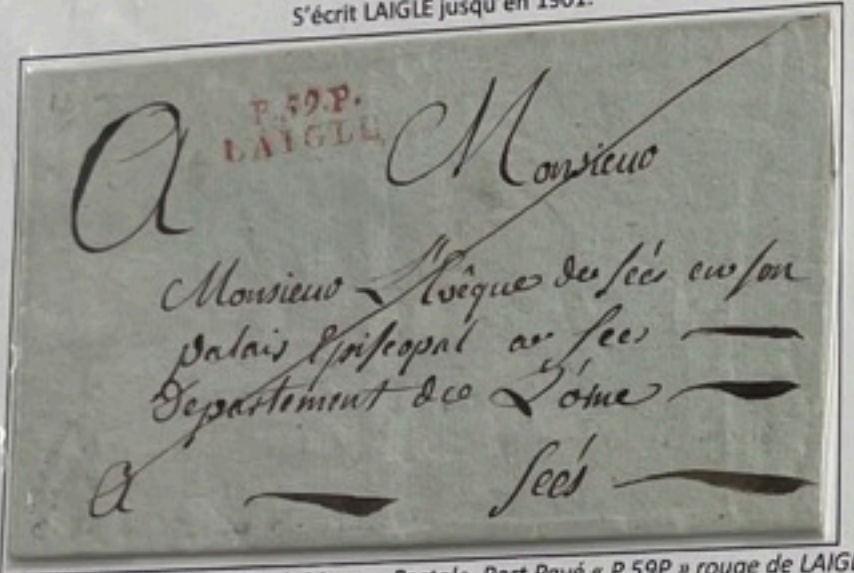 S'écrit LAIGLE jusqu'en 1961.
P.59.P.
LAIGLE
A Monsieur
Monsieur L'Evêque de Séés en son
palais Episcopal a Sees
Departement de L'orne
A Séés
Port Payé « P 59P » rouge de LAIGL